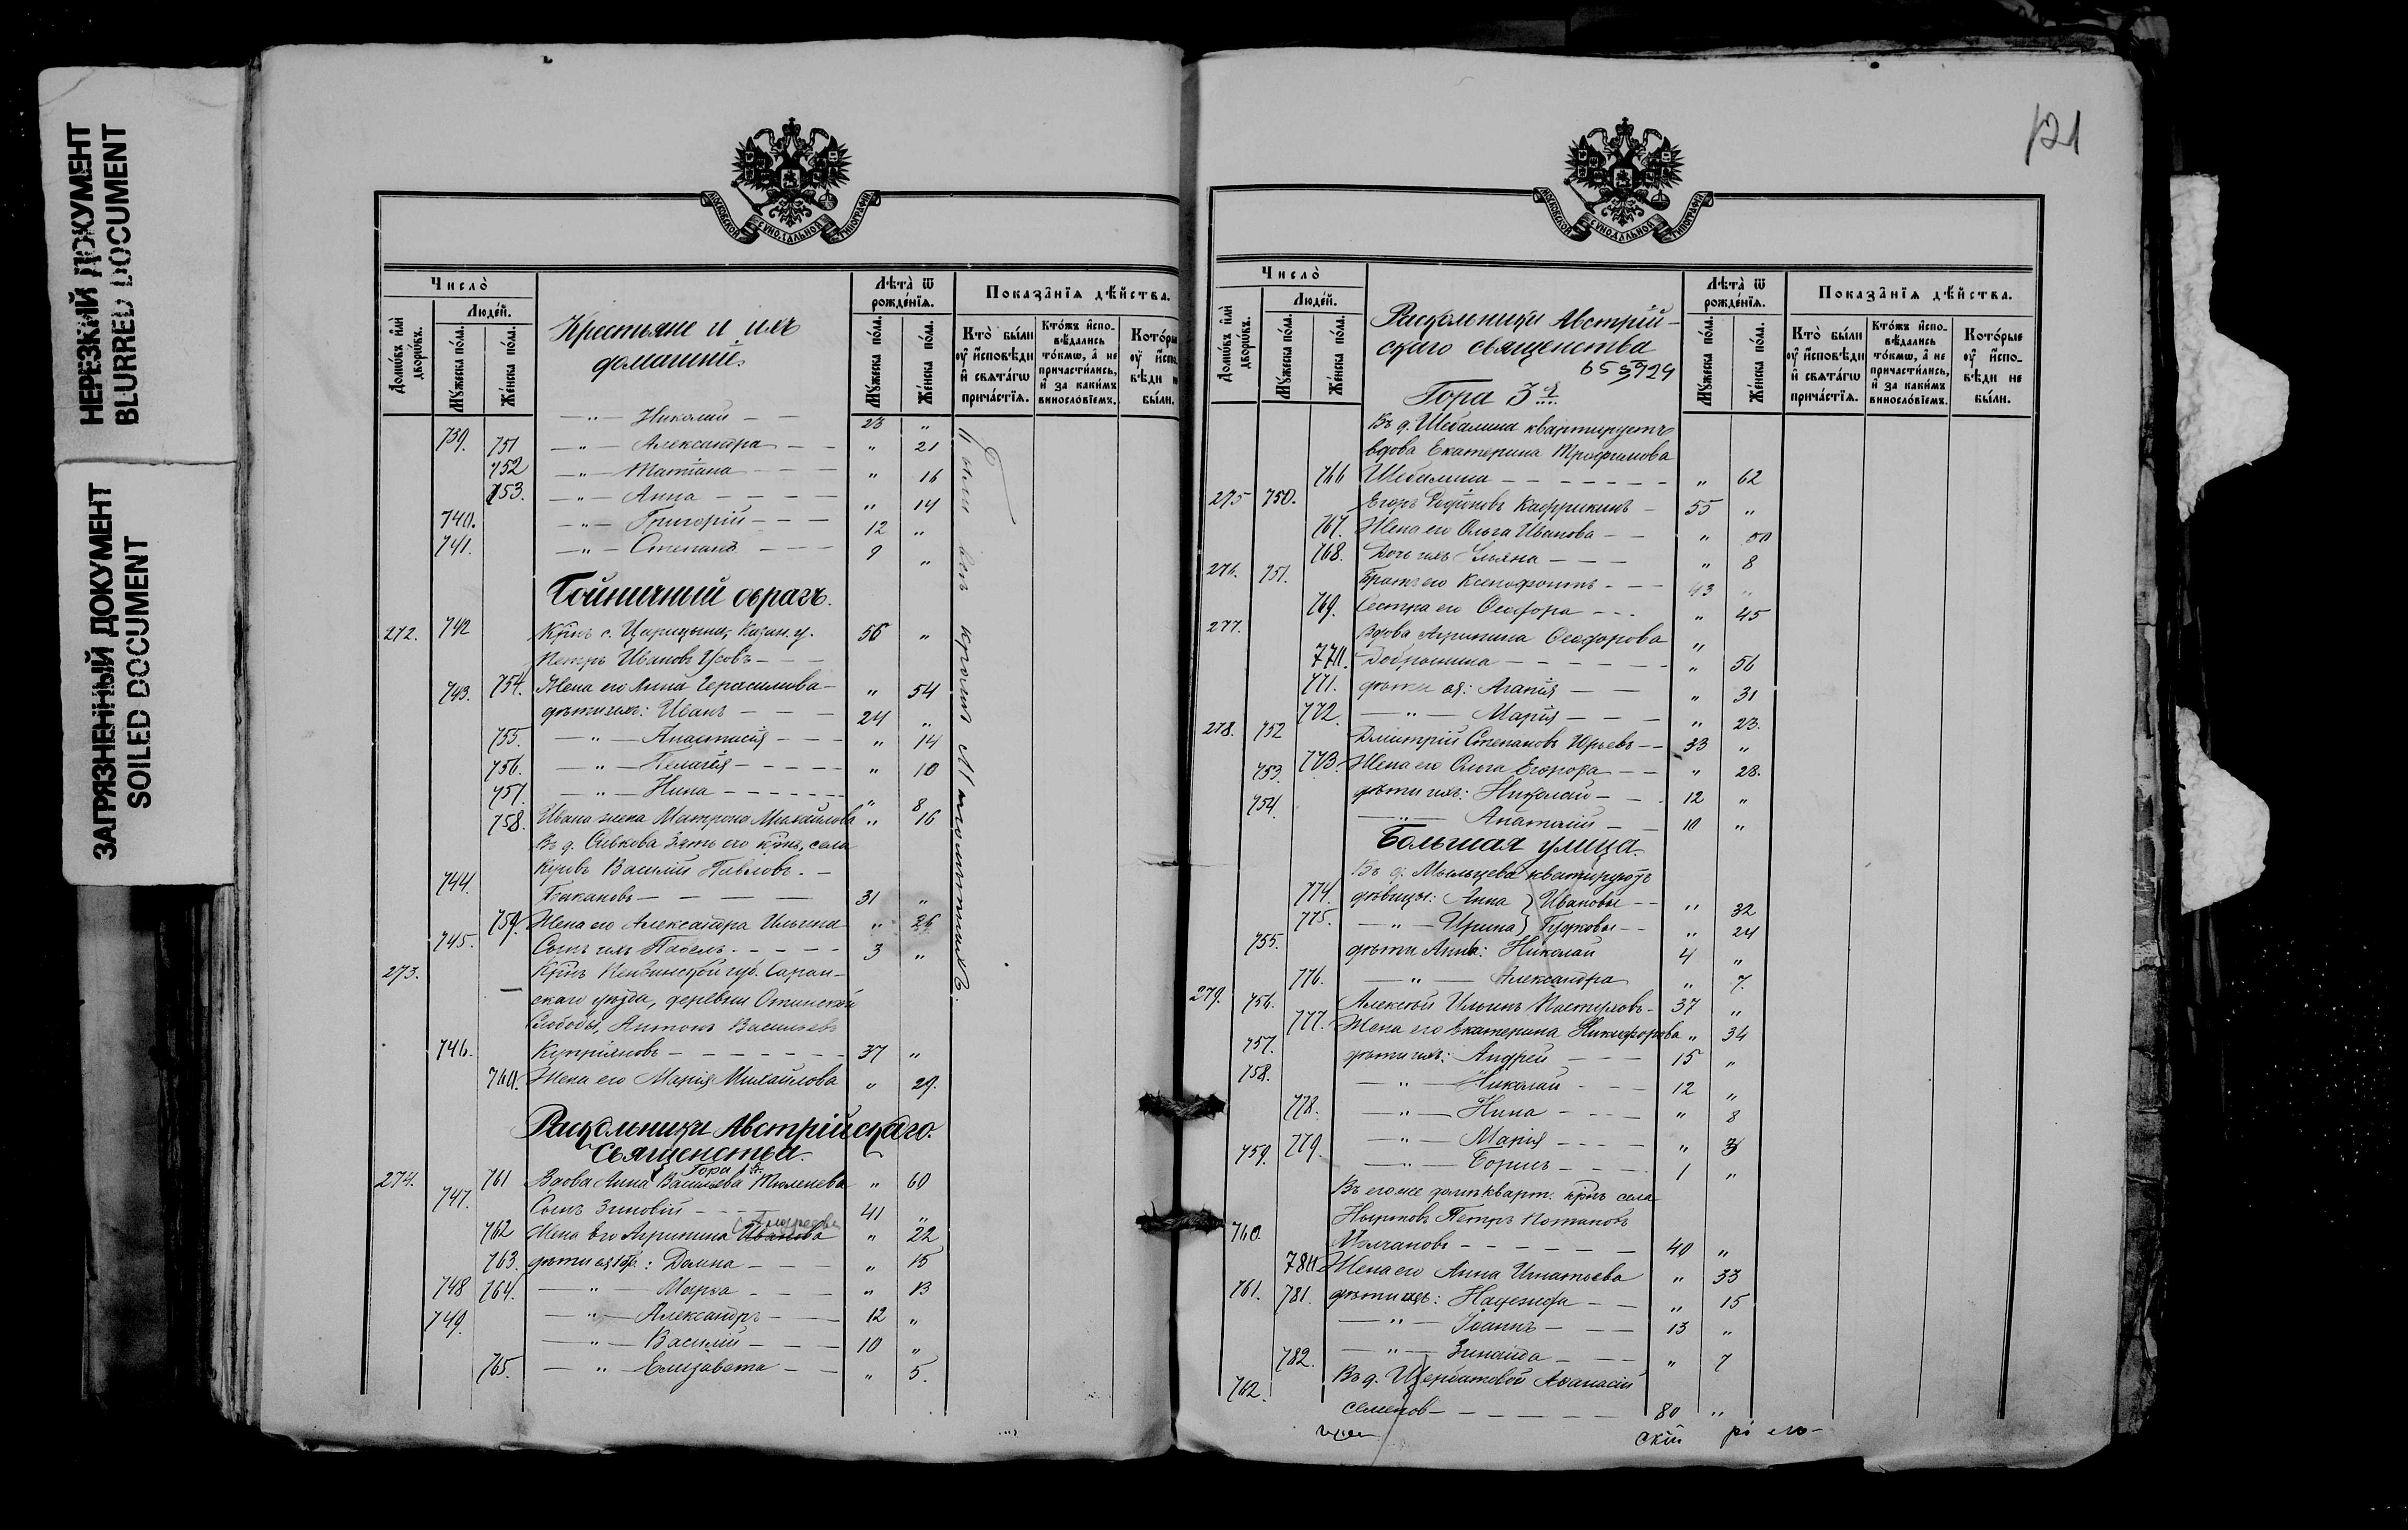 НЕРЕЗКИЙ ДОКУМЕНТ
BLURRED DOCUMENT
ЗАГРЯЗНЕННЫЙ ДОКУМЕНТ
SOILED DOCUMENT
МОСКОВСКОЙ СѴНОДАЛЬНОЙ ТИПОГРАФІИ
Число̀
Людéй.
Домѡ́въ и҆лѝ дворѡ́въ.
Мꙋ́жеска по́ла.
Же́нска по́ла.
Крестьяне и ихъ
домашніе.
Лѣта̀ ѿ рожде́нїѧ.
Мꙋ́жеска по́ла.
Же́нска по́ла.
Показа̑нїѧ дѣ́йства.
Кто̀ бы́ли ᲂу҆ и҆сповѣ́ди и҆ свѧта́гѡ прича́стїѧ.
Кто́жъ и҆спо-вѣ́дались то́кмѡ, а҆ не причасти́лись, и҆ за каки́мъ виносло́вїемъ.
—"— Николай — — 23 "
739. 751 —"— Александра — — " 21
752 —"— Татіана — — — " 16
753. —"— Анна — — — — " 14
740. —"— Григорій — — — 12 "
741. —"— Степанъ — — — 9 "
Были всѣ кромѣ
Гойничный оврагъ.
272. 742 Крнъ с. Царицына, Казан. у. 56 "
Петръ Ивановъ Усовъ — — —
754. Жена его Анна Герасимова — " 54
743. дѣти ихъ: Иванъ — — — 24 "
755. —"— Анастасія — — — " 14
756. —"— Пелагія — — — — " 10
757. —"— Нина — — — — — " 8
758. Ивана жена Матрона Михайлова " 16
Въ д. Сивкова Зять его крнъ, села
Василій Павловъ. —
744. — — — — 31 "
759. Жена его Александра Ильина " 26
745. Сынъ ихъ Павелъ. — — — — 3 "
273. Крнъ Пензинской губ. Саран-
скаго уѣзда, деревни
Слободы, Антонъ Васильевъ
746. Купріяновъ — — — — — — 37 "
760. Жена его Марія Михайлова " 29.
Раскольники Австрійскаго.
Священства.
Гора 1я.
274. 761 Вдова Анна Васильева Тюленева " 60
747. Сынъ Зиновій — — — 41 "
Андреева
762 Жена его Агрипина Иванова " 22
763. дѣти : Домна — — — " 15
764. —"— Марѳа — — — " 13
748 —"— Александръ — — — 12 "
749. —"— Василій — — — 10 "
765. —"— Елизавета — — " 5.
121
МОСКОВСКОЙ СѴНОДАЛЬНОЙ ТИПОГРАФІИ
Число̀
Людéй.
Домѡ́въ и҆лѝ дворѡ́въ.
Мꙋ́жеска по́ла.
Же́нска по́ла.
Раскольники Австрій-
скаго священства
Лѣта̀ ѿ рожде́нїѧ.
Мꙋ́жеска по́ла.
Же́нска по́ла.
Показа̑нїѧ дѣ́йства.
Кто̀ бы́ли ᲂу҆ и҆сповѣ́ди и҆ свѧта́гѡ прича́стїѧ.
Кто́жъ и҆спо-вѣ́дались то́кмѡ, а҆ не причасти́лись, и҆ за каки́мъ виносло́вїемъ.
Кото́рые ᲂу҆ и҆спо-вѣ́ди не бы́ли.
Гора 3я
Въ д. Шебалина квартируетъ
вдова Екатерина Трофимова
766 Шебалина — — — — — — " 62
275 750. Егоръ Кафрикинъ — 55 "
767. Жена его Ольга Иванова — — " 50
768. Дочь ихъ Ульяна — — — " 8
276. 751. Братъ его Ксенофонтъ — — — 43 "
769. Сестра его Ѳеодора — — — " 45
277. Вдова Агрипина Ѳеодорова "
770. — — — — — — " 56
771. дѣти ея: Агапія — — " 31
772. —"— Марія — — — " 23.
278. 752 Дмитрій Степановъ Юрьевъ — — 33 "
773. Жена его Ольга Егорова — — " 28.
753. дѣти ихъ: Николай — — — 12 "
754. —"— Анатолій — — 10 "
Большая улица.
Въ д. Мыльцева квартируютъ
774. дѣвицы: Анна } Ивановы — — " 32
775. —"— Ирина } — — " 24
755. дѣти Анны: Николай 4 "
776. —"— Александра " 7.
279. 756. Алексѣй Ильинъ Пастуховъ — 37 "
777. Жена его Екатерина Никифорова " 34
757. дѣти ихъ: Андрей — — — 15 "
758. —"— Николай — — — 12 "
778. —"— Нина — — — — " 8
779. —"— Марія — — — — " 3
759. —"— Борисъ — — — 1 "
Въ его же домѣ кварт. крнъ села
Петръ Потаповъ
760. Молчановъ — — — — — — 40 "
780. Жена его Анна Игнатьева " 33
781. дѣти ихъ: Надежда — — " 15
761. —"— Іоаннъ — — — 13 "
782. —"— Зинаида — — — " 7
Въ д. Щербатовой Аѳанасій
762. Семенов — — — — — — 80 "
скій